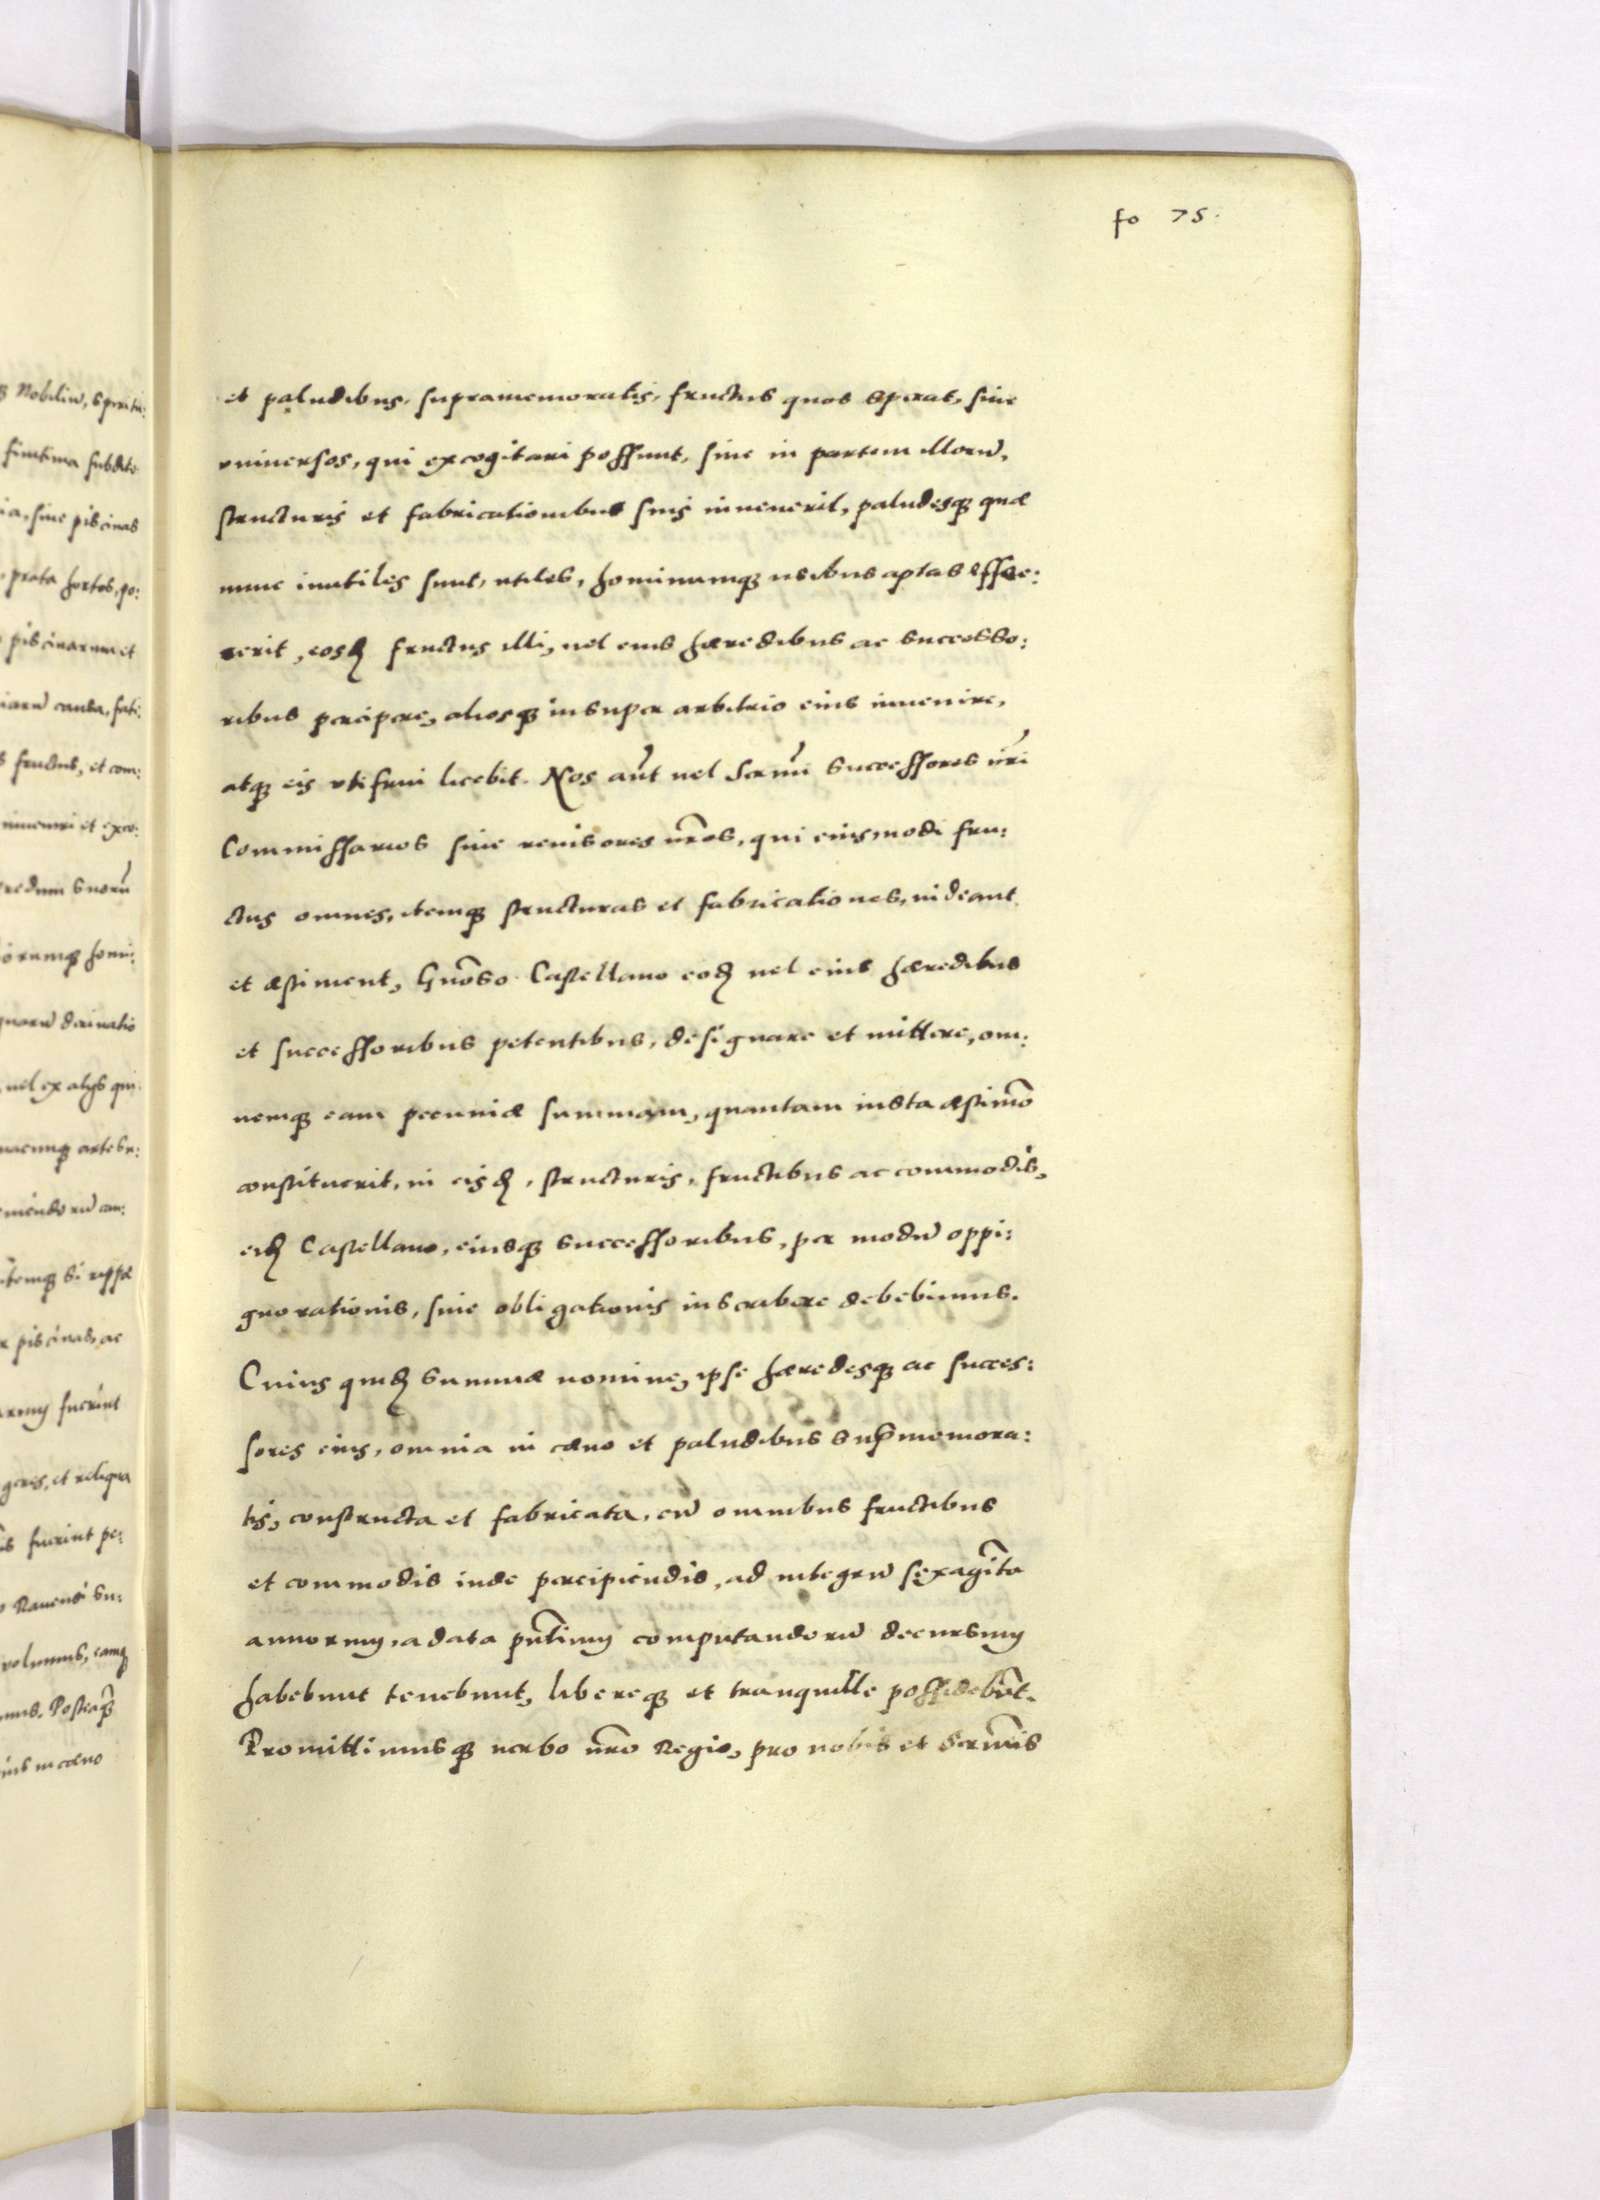 fo 75.
et paludibus, supramemoratis, fructus quos sperat, siue
vniuersos, qui excogitari possunt, siue in partem illorũ,
structuris et fabricationibus suis inuenerit, paludesqꝫ quæ
nunc inutiles sunt, vtiles, hominumqꝫ usibus aptas effece:
rerit, eosđ fructus illi, uel eius hæredibus ac successo:
ribus percipere, aliosqꝫ insuper arbitrio eius inuenire,
atqꝫ eis vti frui licebit. Nos aũt uel Sermi Successores nři
Commissarios siue reuisores nřos, qui eiusmodi fru:
ctus omnes, itemqꝫ structuras et fabricationes, uideant
et æstiment, Gnõso Castellano eođ uel eius hæredibus
et successoribus petentibus, designare et mittere, om:
nemqꝫ eam pecuniæ summam, quantam iusta æstimõ
constituerit, in eisđ, structuris, fructibus ac commodis,
eiđ Castellano, eiusqꝫ successoribus, per modũ oppi:
gnorationis, siue obligationis inscribere debebimus.
Cuius quiđ summæ nomine, ipse hæredesqꝫ ac succes:
sores eius, omnia in cæno et paludibus suꝓmemora:
tis, constructa et fabricata, cũ omnibus fructibus
et commodis inde percipiendis, ad integrũ sexagĩta
annorum, a data pñtium computandorũ decursum
habebunt tenebunt, libereqꝫ et tranquille possidebũt.
Promittimusqꝫ uerbo nřo Regio, pro nobis et Sermis
qꝫ Nobiliũ, spiritu:
subdito
siue piscinas
prata hortos, po:
piscinarum et
causa,
fructus, et com:
inueniri et exco:
suorũ
homi:
deriuatio
uel ex alijs qui
piscinas, ac
fuerint
et reliqua
fuerint pe:
Rauensi su:
volumus, eamqꝫ
Posteaqꝫ
in cæno